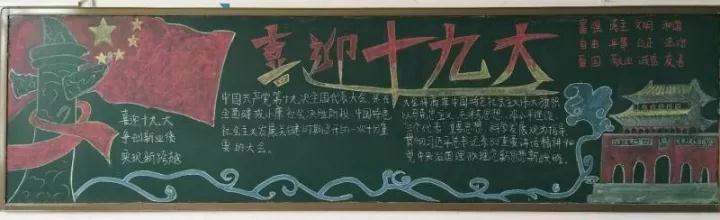 喜迎十九大
富强 民主 文明 和谐
自由 平等 公正 法治
爱国 敬业 诚信 友善
喜迎十九大
争创新业绩
实现新跨越
中国共产党第十九次全国代表大会,是在
全面建成小康社会决胜阶段、中国特色
社会主义发展关键时期召开的一次十分重
要的大会。
大会将高举中国特色社会主义伟大旗帜
以马列主义、毛泽东思想、邓小平理论
三个代表重要思想、科学发展观为指导
贯彻习近平总书记系列重要讲话精神和
党中央治国理政理念新思想新战略。